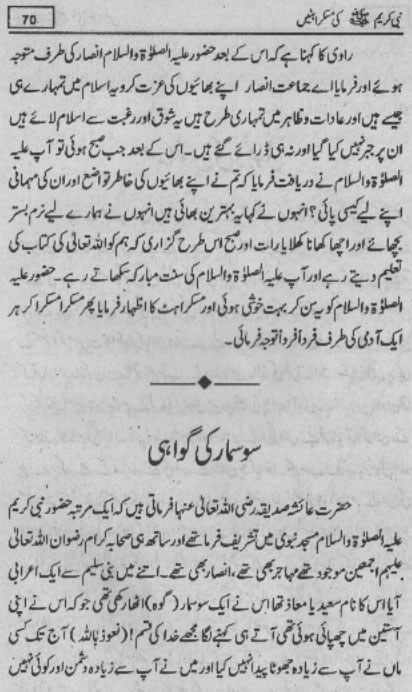 نبی کریم ﷺ کی مسکراہٹیں
70
راوی کا کہنا ہے کہ اس کے بعد حضور علیہ الصلوٰۃ والسلام انصار کی طرف متوجہ
ہوئے اور فرمایا اے جماعت انصار اپنے بھائیوں کی عزت کرو یہ اسلام میں تمہارے ہی
جیسے ہیں اور عادات وظاہر میں تمہاری طرح ہیں یہ شوق اور رغبت سے اسلام لائے ہیں
ان پر جبر نہیں کیا گیا اور نہ ہی ڈرائے گئے ہیں۔ اس کے بعد جب صبح ہوئی تو آپ علیہ
الصلوٰۃ والسلام نے دریافت فرمایا کہ تم نے اپنے بھائیوں کی خاطر تواضع اور ان کی مہمانی
اپنے لیے کیسی پائی؟ انہوں نے کہا یہ بہترین بھائی ہیں انہوں نے ہمارے لیے نرم بستر
بچھائے اور اچھا کھانا کھلایا رات اور صبح اس طرح گزاری کہ ہم کو اللہ تعالیٰ کی کتاب کی
تعلیم دیتے رہے اور آپ علیہ الصلوٰۃ والسلام کی سنت مبارکہ سکھاتے رہے۔ حضور علیہ
الصلوٰۃ والسلام کو یہ سن کر بہت خوشی ہوئی اور مسکراہٹ کا اظہار فرمایا پھر مسکرا مسکرا کر ہر
ایک آدمی کی طرف فرداً فرداً توجہ فرمائی۔
سوسمار کی گواہی
حضرت عائشہ صدیقہ رضی اللہ تعالیٰ عنہا فرماتی ہیں کہ ایک مرتبہ حضور نبی کریم
علیہ الصلوٰۃ والسلام مسجد نبوی میں تشریف فرما تھے اور ساتھ ہی صحابہ کرام رضوان اللہ تعالیٰ
علیہم اجمعین موجود تھے مہاجر بھی تھے، انصار بھی تھے۔ اتنے میں بنی سلیم سے ایک اعرابی
آیا اس کا نام سعید یا معاذ تھا اس نے ایک سوسمار (گوہ) اٹھا رکھی تھی جو کہ اس نے اپنی
آستین میں چھپائی ہوئی تھی آتے ہی کہنے لگا مجھے خدا کی قسم! (نعوذ باللہ) آج تک کسی
ماں نے آپ سے زیادہ جھوٹا پیدا نہیں کیا اور میں نے آپ سے زیادہ دشمن اور کوئی نہیں